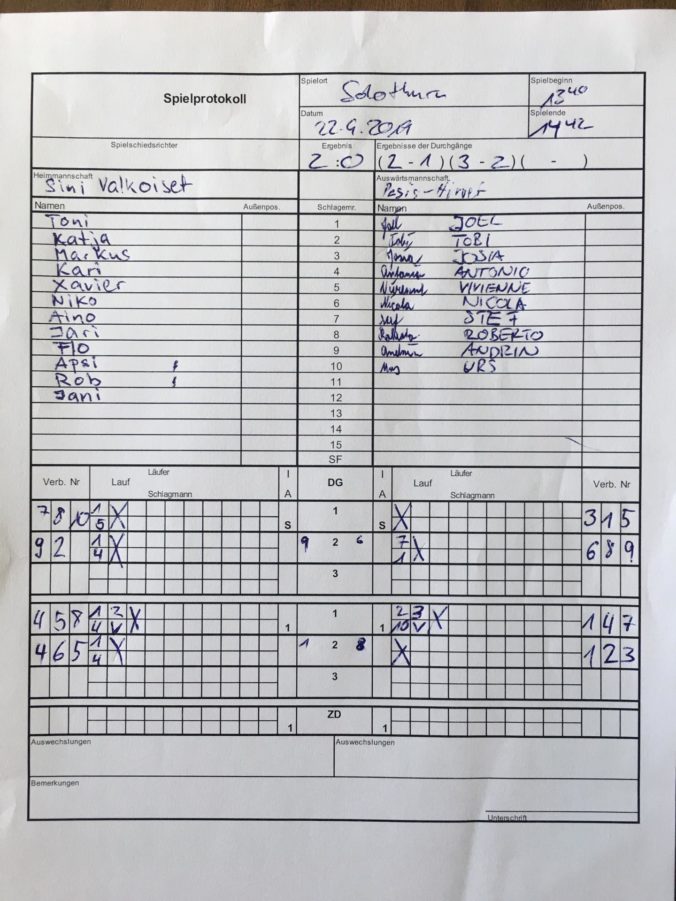 Spielprotokoll
Spielort
Solothurn
Spielbeginn
13 40
Datum
22.9.2019
Spielende
14 42
Spielschiedsrichter
Ergebnis
2:0
Ergebnisse der Durchgänge
(2-1)(3-2)( - )
Heimmannschaft
Sini Valkoiset
Auswärtsmannschaft
Pesis-
Namen Außenpos. Schlagernr. Namen Außenpos.
Toni 1 JOEL
Katja 2 Tobi TOBI
Markus 3 JOSIA
Kari 4 ANTONIO
Xavier 5 VIVIENNE
Niko 6 Nicola NICOLA
Aino 7 STEF
Jari 8 ROBERTO
Flo 9 ANDRIN
Apsi 10 URS
Rob 11
Jani 12
13
14
15
SF
Verb. Nr Lauf Läufer Schlagmann I A DG I A Lauf Läufer Schlagmann Verb. Nr
7 8 10 1 5 X S 1 S X 3 1 5
9 2 1 4 X 9 2 6 7 1 X 6 8 9
3
4 5 8 1 4 2 V X 1 1 1 2 10 3 V X 1 4 7
4 6 5 1 4 X 1 2 8 X 1 2 3
3
1 ZD 1
Auswechslungen Auswechslungen
Bemerkungen
Unterschrift